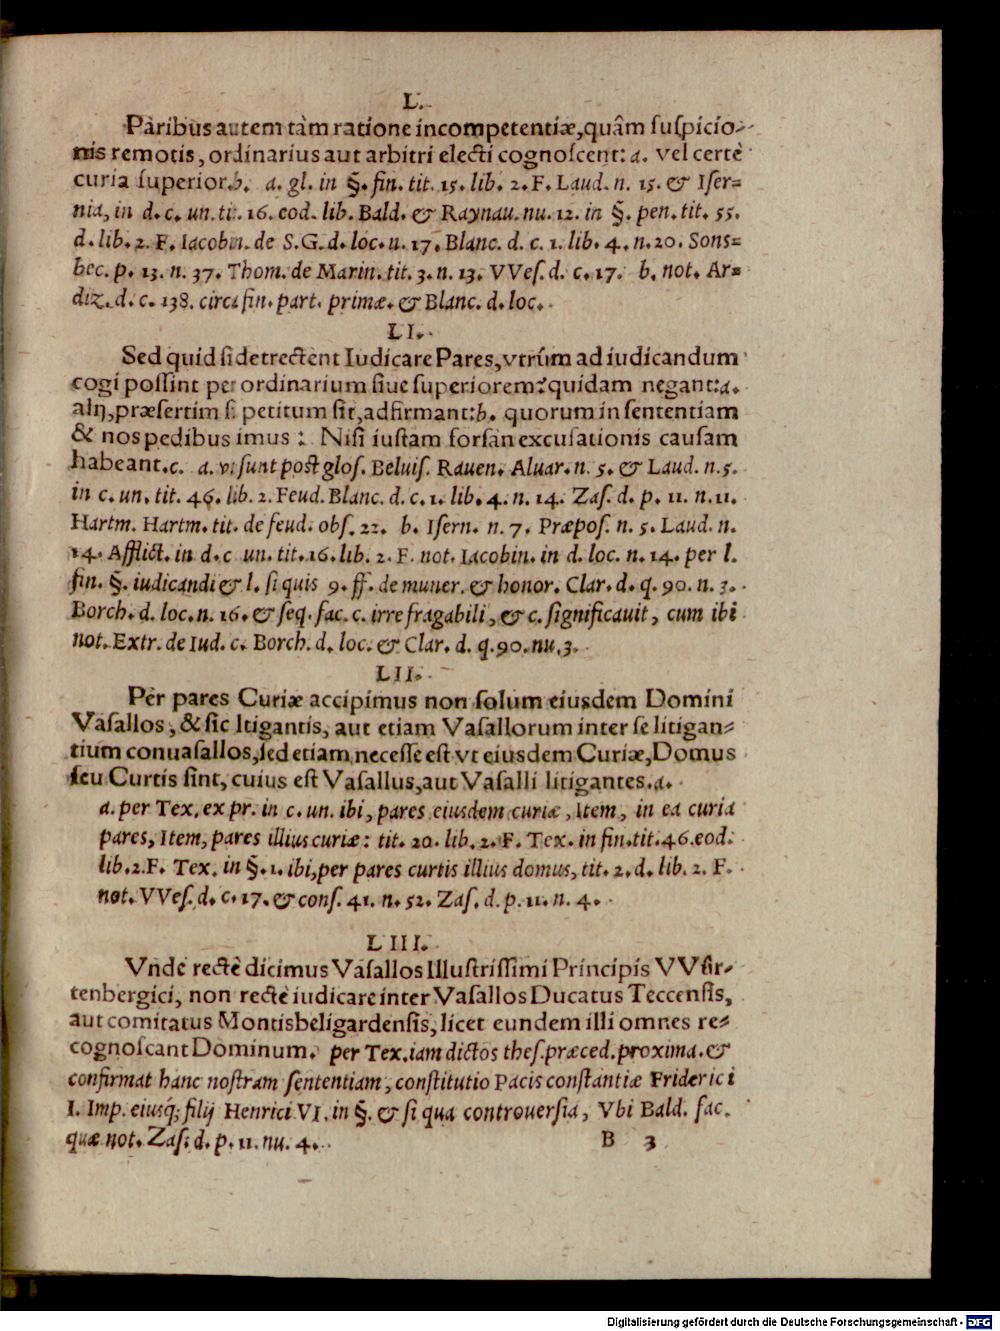 L.
Paribus autem tàm ratione incompetentiæ, quâm suspicio-
nis remotis, ordinarius aut arbitri electi cognoscent: a. vel certè
curia superior. b. a. gl. in §. fin. tit. 15. lib. 2. F. Laud. n. 15. & Iser-
nia, in d. c. un. tit. 16. eod. lib. Bald. & Raynau. nu. 12. in §. pen. tit. 55.
d. lib. 2. F. Iacobin. de S. G. d. loc. n. 17. Blanc. d. c. 1. lib. 4. n. 20. Sons-
bec. p. 13. n. 37. Thom. de Marin. tit. 3. n. 13. VVes. d. c. 17. b. not. Ar-
diz. d. c. 138. circa fin. part. primæ. & Blanc. d. loc.
LI.
Sed quid si detrectent Iudicare Pares, vtrùm ad iudicandum
cogi possint per ordinarium siue superiorem? quidam negant: a.
alij, præsertim si petitum sit, adfirmant: b. quorum in sententiam
& nos pedibus imus: Nisi iustam forsàn excusationis causam
habeant. c. a. vt sunt post glos. Beluis. Rauen. Aluar. n. 5. & Laud. n. 5.
in c. un. tit. 46. lib. 2. Feud. Blanc. d. c. 1. lib. 4. n. 14. Zas. d. p. 11. n. 11.
Hartm. Hartm. tit. de feud. obs. 22. b. Isern. n. 7. Præpos. n. 5. Laud. n.
14. Afflict. in d. c. un. tit. 16. lib. 2. F. not. Iacobin. in d. loc. n. 14. per l.
fin. §. iudicandi & l. si quis 9. ff. de muner. & honor. Clar. d. q. 90. n. 3.
Borch. d. loc. n. 16. & seq. fac. c. irrefragabili, & c. significauit, cum ibi
not. Extr. de Iud. c. Borch. d. loc. & Clar. d. q. 90. nu. 3.
LII.
Per pares Curiæ accipimus non solum eiusdem Domini
Vasallos, & sic ltigantis, aut etiam Vasallorum inter se litigan-
tium conuasallos, sed etiam necesse est vt eiusdem Curiæ, Domus
seu Curtis sint, cuius est Vasallus, aut Vasalli litigantes. a.
a. per Tex. ex pr. in c. un. ibi, pares eiusdem curiæ, Item, in ea curia
pares, Item, pares illius curiæ: tit. 20. lib. 2. F. Tex. in fin. tit. 46. eod.
lib. 2. F. Tex. in §. 1. ibi, per pares curtis illius domus, tit. 2. d. lib. 2. F.
not. VVes. d. c. 17. & cons. 41. n. 52. Zas. d. p. 11. n. 4.
LIII.
Vnde rectè dicimus Vasallos Illustrissimi Principis VVür-
tenbergici, non rectè iudicare inter Vasallos Ducatus Teccensis,
aut comitatus Montisbeligardensis, licet eundem illi omnes re-
cognoscant Dominum. per Tex. iam dictos thes. præced. proxima. &
confirmat hanc nostram sententiam, constitutio Pacis constantiæ Friderici
I. Imp. eiusq; filij Henrici VI. in §. & si qua controuersia, Vbi Bald. fac.
quæ not. Zas. d. p. 11. nu. 4.
B 3
Digitalisierung gefördert durch die Deutsche Forschungsgemeinschaft - DFG